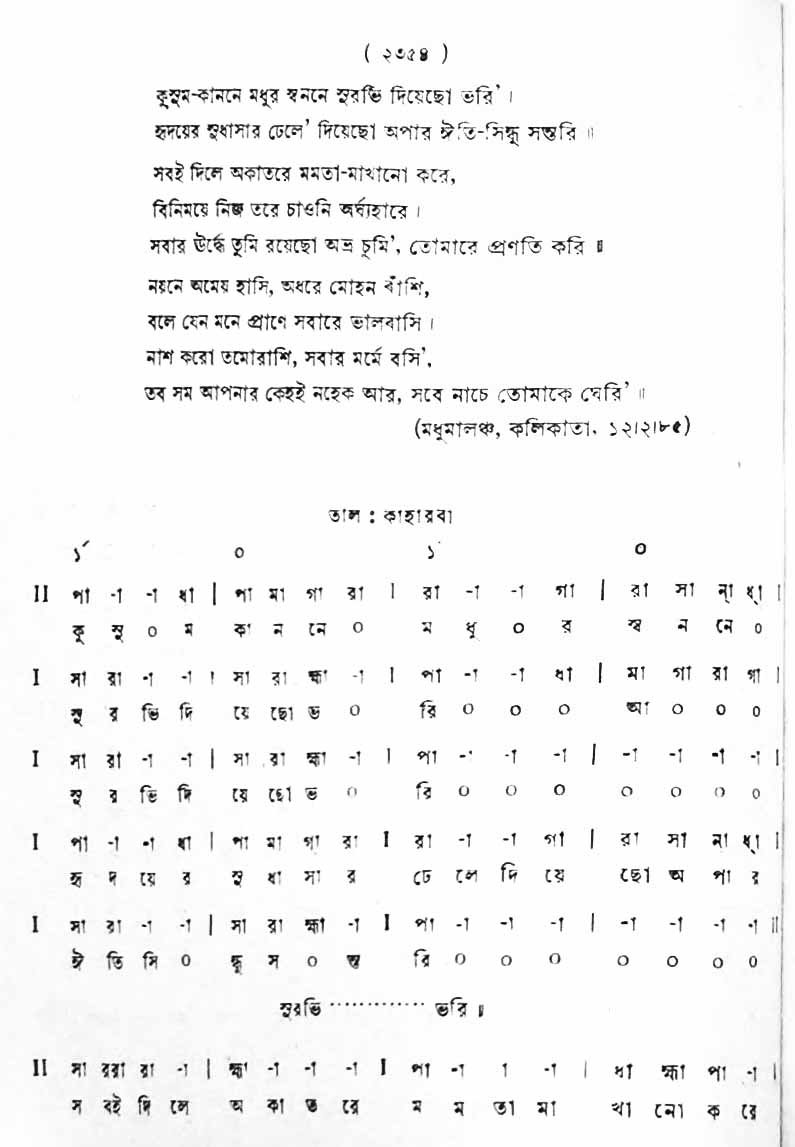 ( ২৩৫৪ )
কুসুম-কাননে মধুর স্বননে সুরভি দিয়েছো ভরি’ ।
হৃদয়ের সুধাসার ঢেলে’ দিয়েছো অপার ঈতি-সিন্ধু সন্তরি ॥
সবই দিলে অকাতরে মমতা-মাখানো করে,
বিনিময়ে নিজ তরে চাওনি অর্ঘ্যহারে ।
সবার ঊর্দ্ধে তুমি রয়েছো অভ্র চুমি’, তোমারে প্রণতি করি ॥
নয়নে অমেয় হাসি, অধরে মোহন বাঁশি,
বলে যেন মনে প্রাণে সবারে ভালবাসি ।
নাশ করো তমোরাশি, সবার মর্মে বসি’,
তব সম আপনার কেহই নহেক আর, সবে নাচে তোমাকে ঘেরি’ ॥
(মধুমালঞ্চ, কলিকাতা, ১২।২।৮৫)
তাল : কাহারবা
১´ ০ ১´ ০
II পা -া -া ধা | পা মা গা রা I রা -া -া গা | রা সা ন্া ধ্া I
কু সু ০ ম কা ন নে ০ ম ধু ০ র স্ব ন নে ০
I সা রা -া -া । সা রা হ্মা -া I পা -া -া ধা | মা গা রা গা I
সু র ভি দি য়ে ছো ভ ০ রি ০ ০ ০ আ ০ ০ ০
I সা রা -া -া | সা রা হ্মা -া I পা -া -া -া | -া -া -া -া I
সু র ভি দি য়ে ছো ভ ০ রি ০ ০ ০ ০ ০ ০ ০
I পা -া -া ধা | পা মা গা রা I রা -া -া গা | রা সা না ধ্া I
হৃ দ য়ে র সু ধা সা র ঢে লে দি য়ে ছো অ পা র
I সা রা -া -া | সা রা হ্মা -া I পা -া -া -া | -া -া -া -া II
ঈ তি সি ০ ন্ধু স ০ ন্ত রি ০ ০ ০ ০ ০ ০ ০
সুরভি ············· ভরি ॥
II সা ররা রা -া | হ্মা -া -া -া I পা -া া -া | ধা হ্মা পা -া I
স বই দি লে অ কা ত রে ম ম তা মা খা নো ক রে